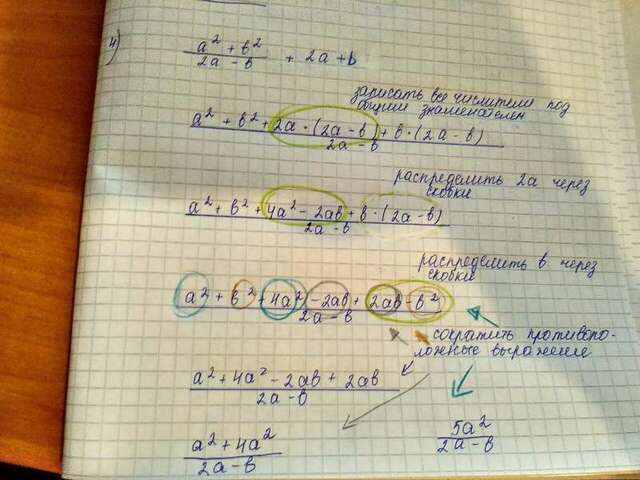 4)
(a² + b²)/(2a - b) + 2a + b
записать все числители под
общим знаменателем
(a² + b² + 2a · (2a - b) + b · (2a - b))/(2a - b)
распределить 2a через
скобки
(a² + b² + 4a² - 2ab + b · (2a - b))/(2a - b)
распределить b через
скобки
(a² + b² + 4a² - 2ab + 2ab - b²)/(2a - b)
сократить противопо-
ложные выражение
(a² + 4a² - 2ab + 2ab)/(2a - b)
(a² + 4a²)/(2a - b)
5a²/(2a - b)